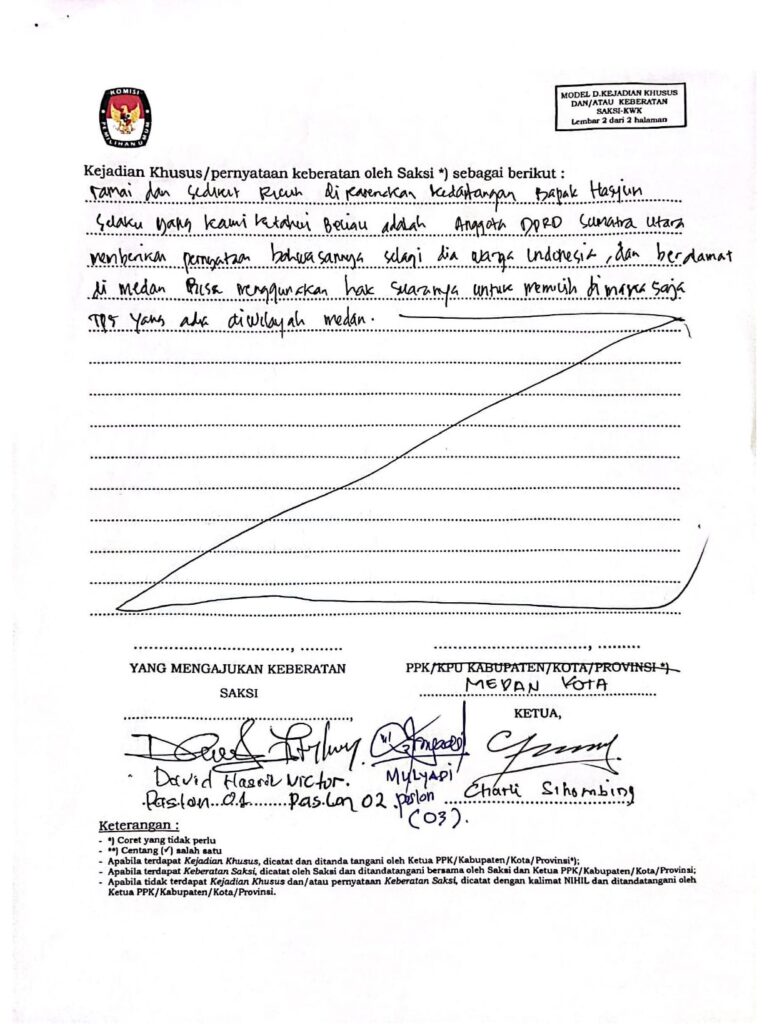 KOMISI
PEMILIHAN UMUM
MODEL D.KEJADIAN KHUSUS
DAN/ATAU KEBERATAN
SAKSI-KWK
Lembar 2 dari 2 halaman
Kejadian Khusus/pernyataan keberatan oleh Saksi *) sebagai berikut :
ramai dan sedikit Ricuh dikarenakan kedatangan Bapak Hasjun
selaku yang kami ketahui Beliau adalah Anggota DPRD Sumatra Utara
memberikan pernyataan bahwasannya selagi dia warga Indonesia, dan beralamat
di medan Bisa menggunakan hak suaranya untuk memilih dimana saja
TPS yang ada diwilayah medan.
............................., .........
............................., .........
YANG MENGAJUKAN KEBERATAN
SAKSI
PPK/KPU KABUPATEN/KOTA/PROVINSI *)
MEDAN KOTA
KETUA,
David Victor.
MULYADI
Charli Sihombing
Paslon 01 Paslon 02 paslon
(03).
Keterangan :
- *) Coret yang tidak perlu
- **) Centang (✓) salah satu
- Apabila terdapat Kejadian Khusus, dicatat dan ditanda tangani oleh Ketua PPK/Kabupaten/Kota/Provinsi*);
- Apabila terdapat Keberatan Saksi, dicatat oleh Saksi dan ditandatangani bersama oleh Saksi dan Ketua PPK/Kabupaten/Kota/Provinsi;
- Apabila tidak terdapat Kejadian Khusus dan/atau pernyataan Keberatan Saksi, dicatat dengan kalimat NIHIL dan ditandatangani oleh
Ketua PPK/Kabupaten/Kota/Provinsi.